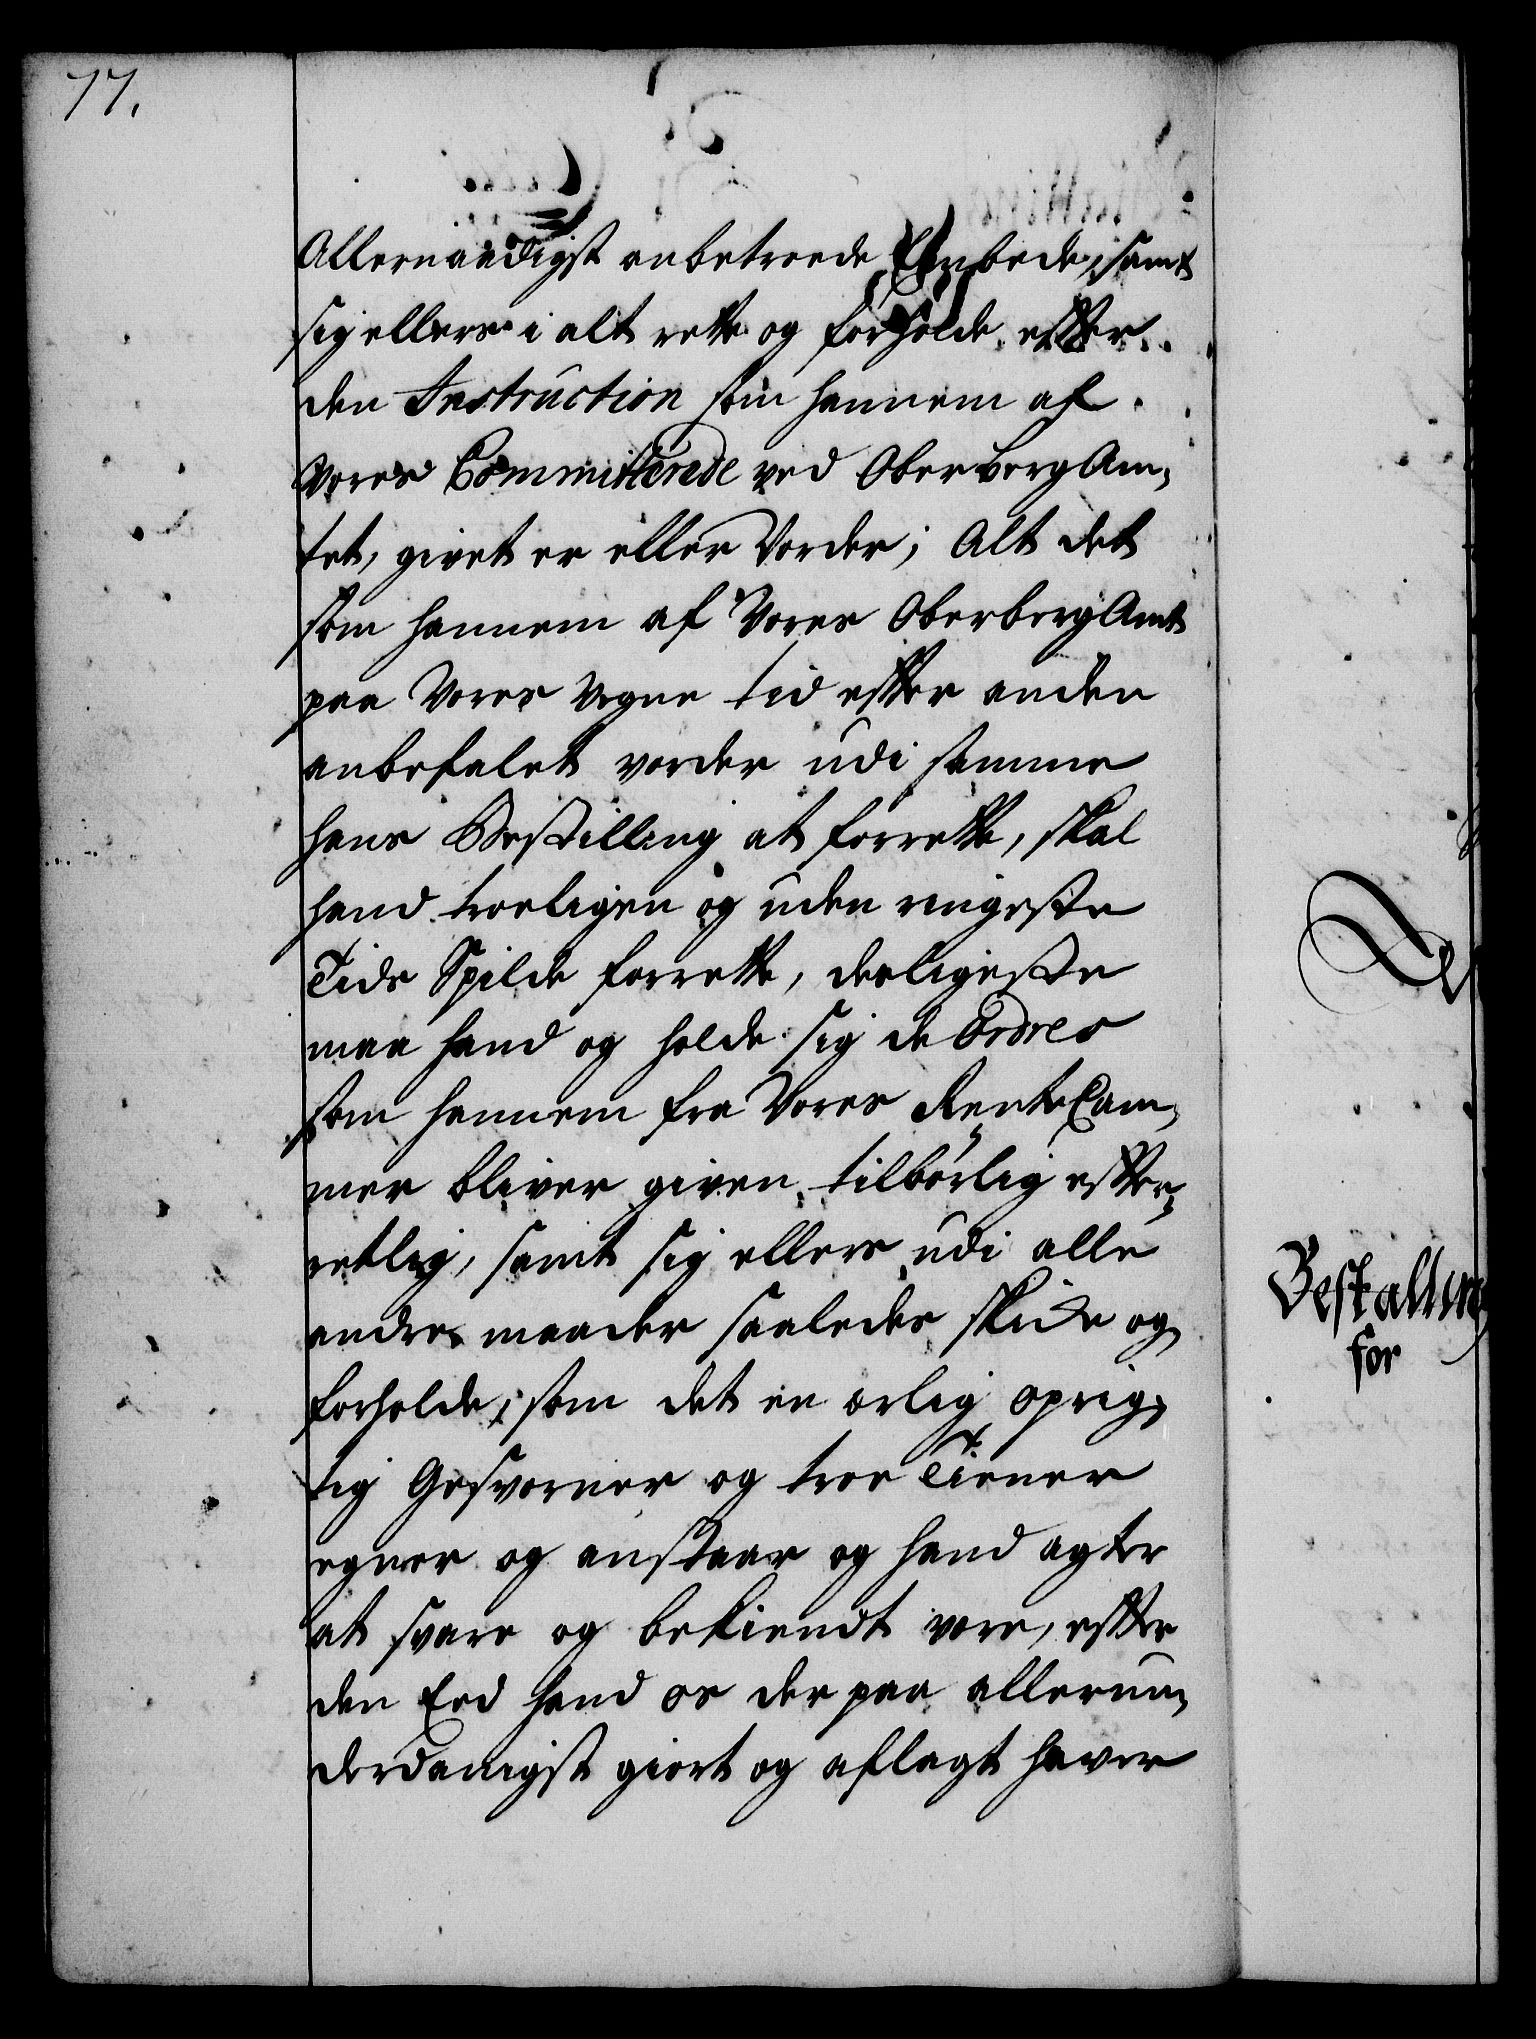 77.
Allernaadigst anbetroede Embede, samt
sig ellers i alt rette og forholde efter
den Instruction som hannem af
Vores Committerede ved OberbergAm,
tet, givet er eller Vorder; Alt det
som hannem af Vores OberbergAmt
paa Vores Vegne tid efter anden
anbefalet vorder udi samme
hans Bestilling at forrette, skal
hand troeligen og uden ringeste
Tids Spilde forrette, desligeste
maa hand og holde sig de Ordres
som hannem fra Vores RenteCam,
mer bliver given tilbørlig efter,
retlig, samt sig ellers udi alle
andre maader saaledes skicke og
forholde, som det en ærlig oprig,
tig Gesvorner og troe Tiener
egner og anstaar og hand agter
at svare og bekiendt være, efter
den Eed hand os der paa allerun,
derdanigst giort og aflagt haver
Bestalling
for